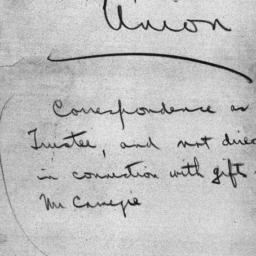 Union
Correspondence as
Trustee, and not direc
in connection with gifts
Mr Carnegie